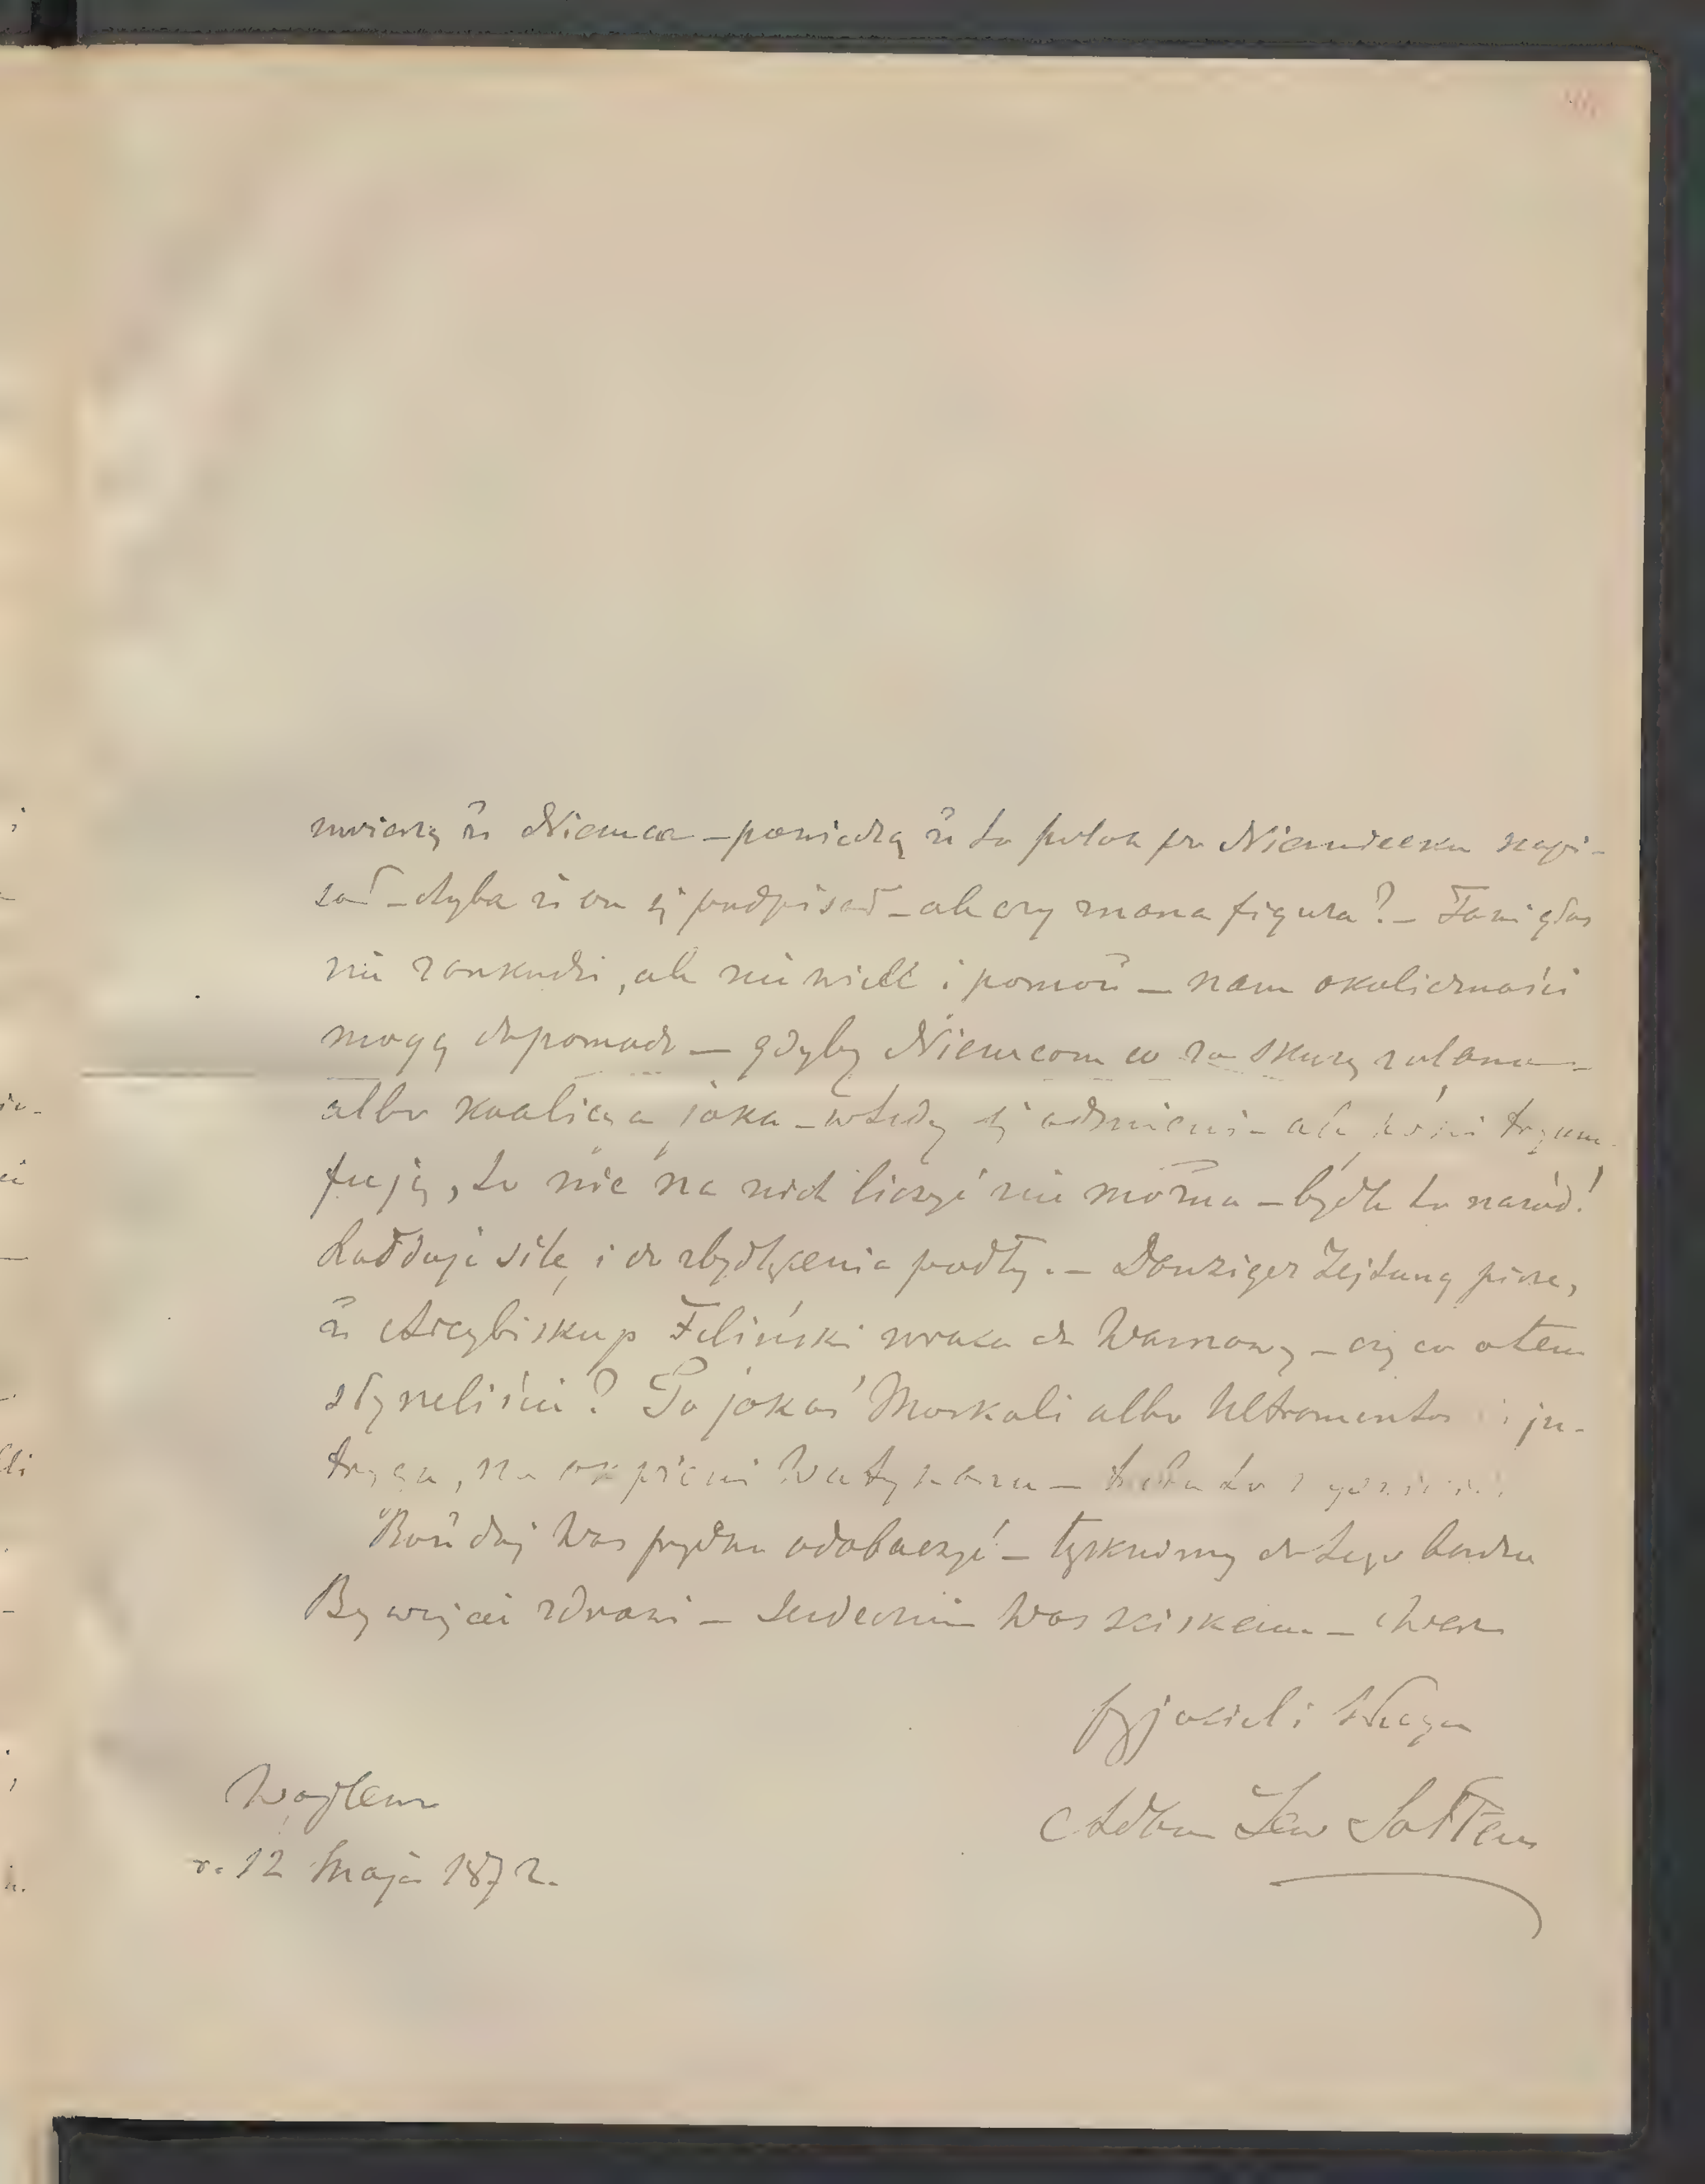 uwierzą że Niemca – powiedzą że to polak po Niemiecku napi-
sał – chyba że on się podpisał – ale czy znana figura? – Taki głos
nie zaszkodzi, ale nie wiele i pomoże – nam okoliczności
mogą dopomódz – gdyby Niemcom co za skurę zalano –
albo koalicya jaka – wtedy się odmieni – ale tryum-
fują, to nic na nich liczyć nie można – bydle to naród!
Ładduje siłę i do zbydlęcenia podły. – Danziger Zejtung pisze,
że Arcybiskup Feliński wraca do Warszawy – czy co o tem
słyszeliście? To jakaś Moskali albo Ultramontan in-
tryga, na Watykanu – to
Boże daj Was prędko odobaczyć – tęsknimy do tego bardzo
Bywajcie zdrowi – Serdecznie Was ściskam – Wasz
przyjaciel i sługa
Adam Lew Sołtan
Wajtlem
r. 12 Maja 1872.